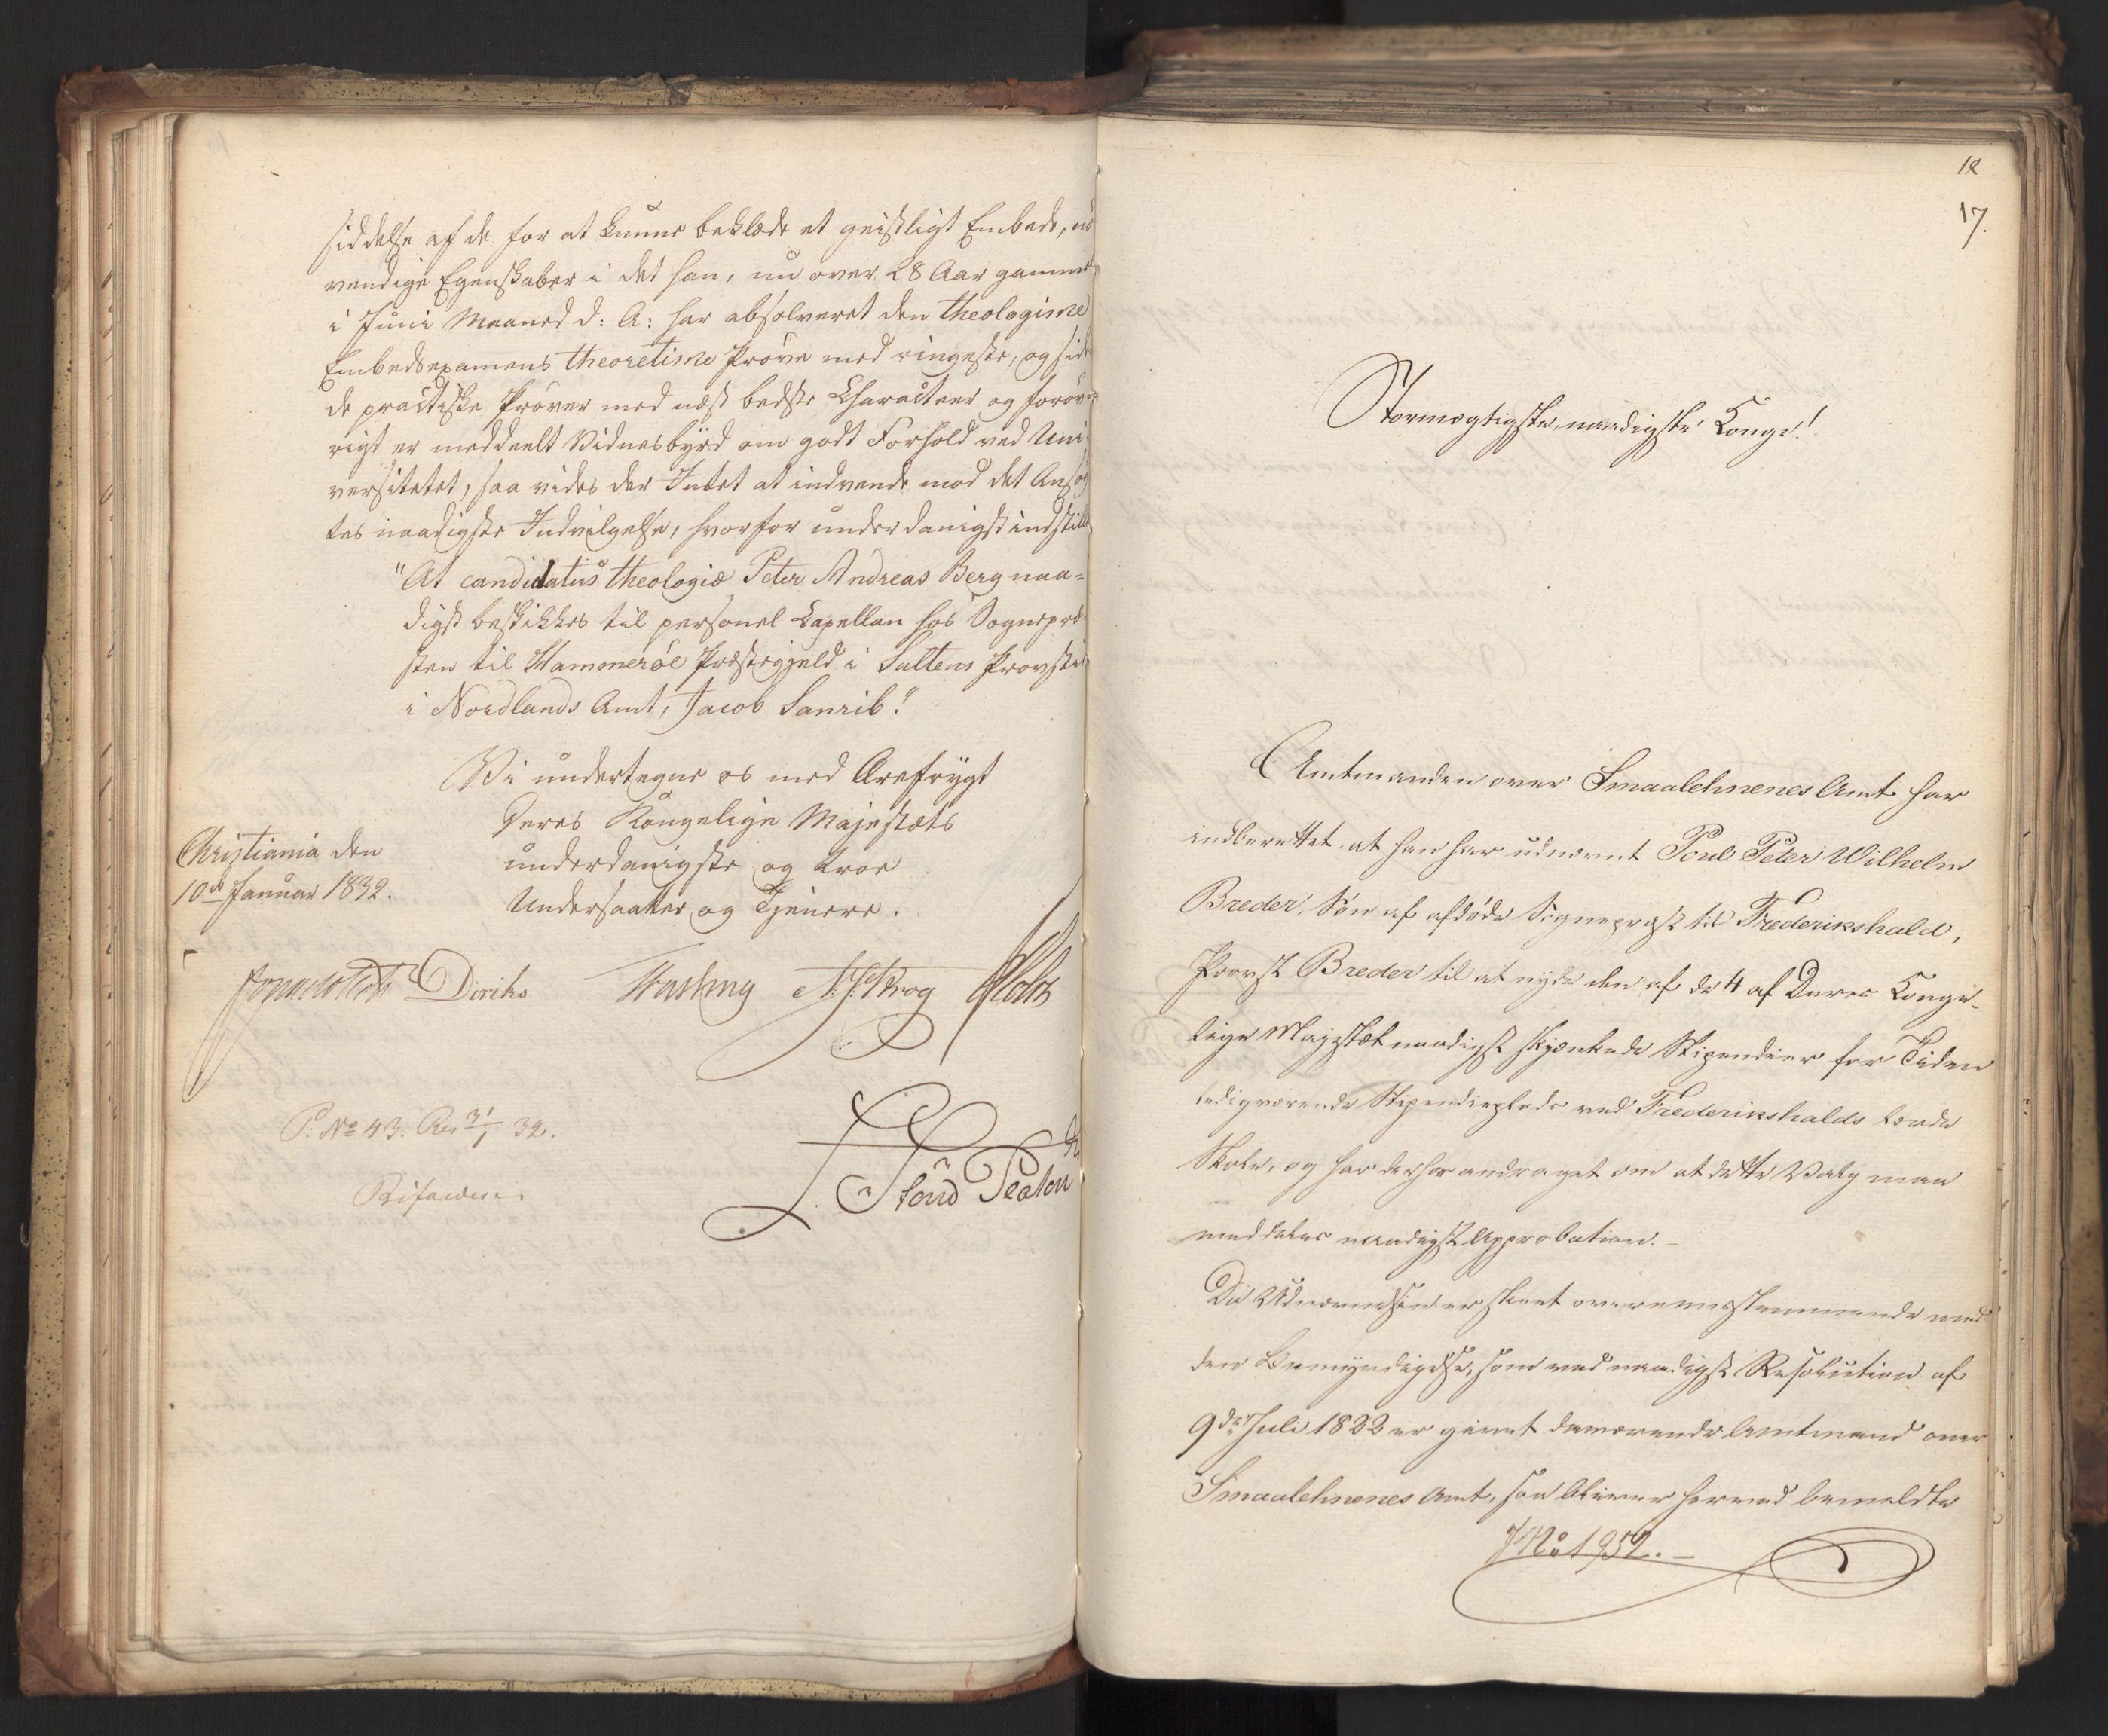 siddelse af de for at kunne beklæde et geistligt Embede, nød
vendige Egenskaber i det han, nu over 28 Aar gammel
i Juni Maaned d: A: har absolveret den theologiske
Embedsexamens theoretiske Prøve med ringeste, og siden
de practiske Prøver med næst bedste Characteer og forøv-
rigt er meddeelt Vidnesbyrd om godt Forhold ved Uni-
versitetet, saa vides der Intet at indvende mod det Ansøg
tes naadigste Indvilgelse, hvorfor underdanigst indstilles
"At candidatus theologiæ Peter Andreas Berg naa-
digst beskikkes til personel Capellan hos Sognepræ-
sten til Hammerøe Præstegjeld i Saltens Provstie
i Nordlands Amt, Jacob Sanrib."
Vi undertegne os med Ærefrygt
Deres Kongelige Majestæts
underdanigste og troe
Undersaatter og Tjenere.
Christiania den
10de Januar 1832.
Diriks Fasting Krog
P: No 43. Res 31/1 32.
18
17.
Stormægtigste, naadigste Konge!
Amtmanden over Smaalehnenes Amt har
indberettet, at han har udnævnt Poul Peter Wilhelm
Breder, Søn af afdøde Sognepræst til Frederikshald,
Provst Breder til at nyde den af de 4 af Deres Konge-
lige Majestæt naadigst skjænkede Stipendier for Tiden
ledigværende Stipendieplads ved Frederikshalds lærde
Skole, og har derhos andraget om at dette Valg maa
meddeles naadigst Approbation.-
Da Udnævnelsen er skeet overeensstemmende med
den Bemyndigelse, som ved naadigst Resolution af
9de Juli 1822 er givet daværende Amtmand over
Smaalehnenes Amt, saa bliver herved bemeldte
J No 1952.-